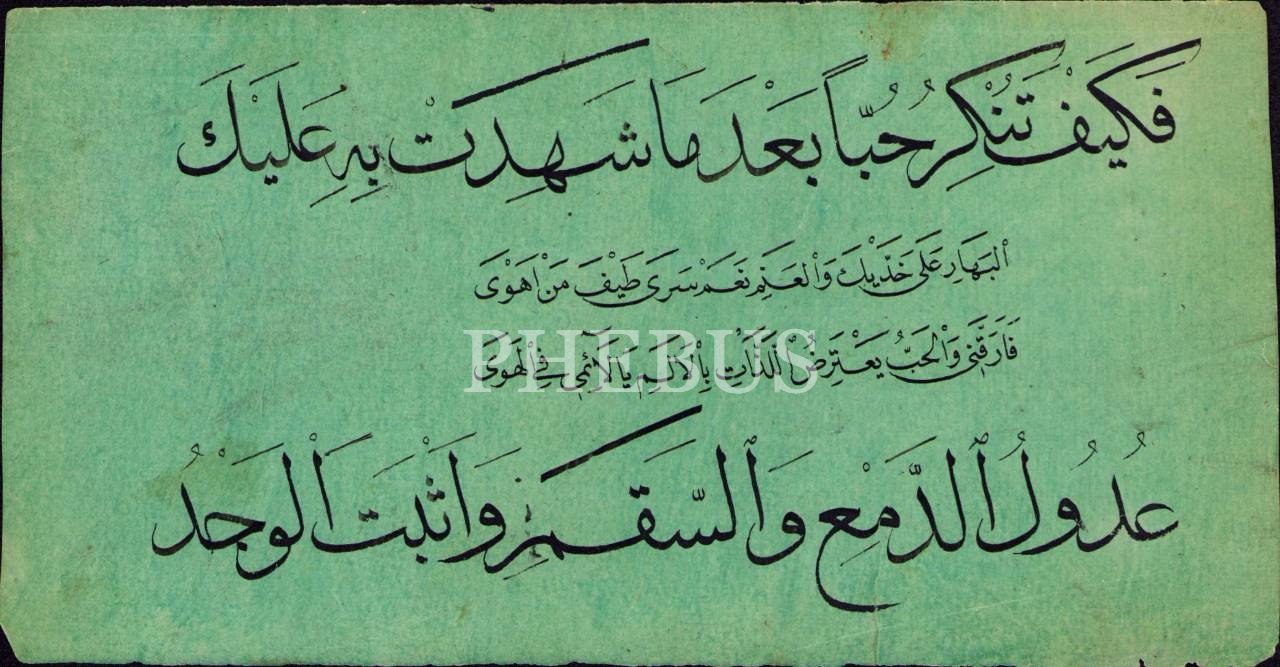 فَكَيْفَ تُنْكِرُ حُبّاً بَعْدَ مَا شَهِدَتْ بِهِ عَلَيْكَ
الْبَهَارِ عَلَى خَدَّيْكَ وَالْعَنَمِ نَعَمْ سَرَى طَيْفُ مَنْ اَهْوَى
فَارَّقَنِي وَالْحُبُّ يَعْتَرِضُ اللَّذَّاتِ بِالْاَلَمِ يَا لَائِمِي فِي الْهَوَى
PHEBUS
عُدُولُ الدَّمْعِ وَالسَّقَمِ وَاَثْبَتَ الْوَجْدُ